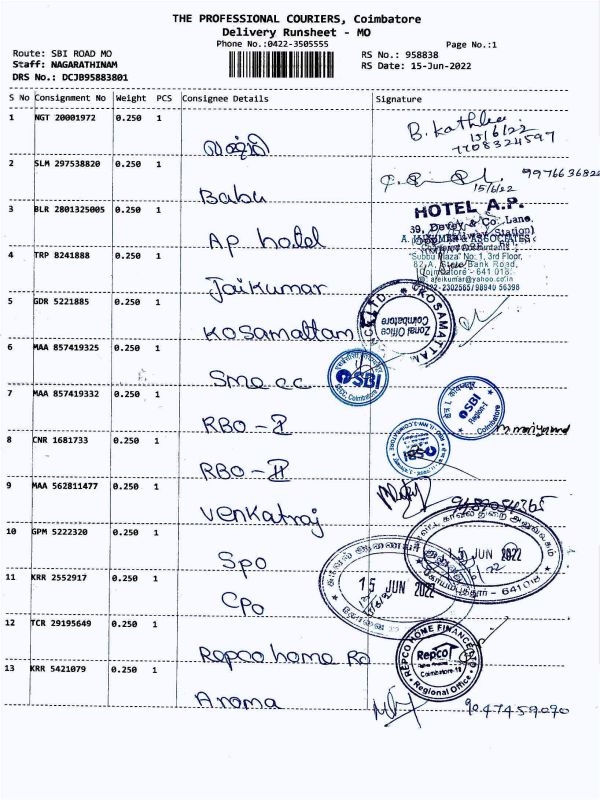 THE PROFESSIONAL COURIERS, Coimbatore
Delivery Runsheet - MO
Phone No.:0422-3505555
Page No.:1
Route: SBI ROAD MO
RS No.: 958838
Staff: NAGARATHINAM
RS Date: 15-Jun-2022
DRS No.: DCJB95883801
S No Consignment No Weight PCS Consignee Details Signature
1 NGT 20001972 0.250 1
B. Kathle
15/6/22
7708324597
2 SLM 297538820 0.250 1 Babu
15/6/22
9976636822
3 BLR 2801325005 0.250 1 AP hotel
HOTEL A.P.
39, Davey & Co. Lane,
4 TRP 8241888 0.250 1 Jaikumar
"Subbu Plaza" No: 1, 3rd Floor,
82 A, State Bank Road,
Coimbatore - 641 018.
5 GDR 5221885 0.250 1 Kosamattam
KOSAMATTAM
Zonal Office
Coimbatore
6 MAA 857419325 0.250 1 Smecc
SBI
7 MAA 857419332 0.250 1 RBO - I
SBI
Region-I
8 CNR 1681733 0.250 1 RBO - II
SBI
9 MAA 562811477 0.250 1 Venkatraj
9489054765
10 GPM 5222320 0.250 1 Spo
15 JUN 2022
கோயமுத்தூர் - 641 018
11 KRR 2552917 0.250 1 CPO
15 JUN 2022
12 TCR 29195649 0.250 1 Repco home Ro
REPCO HOME FINANCE LTD
Repco
Coimbatore-18
Regional Office
13 KRR 5421079 0.250 1 Aroma
9047459090